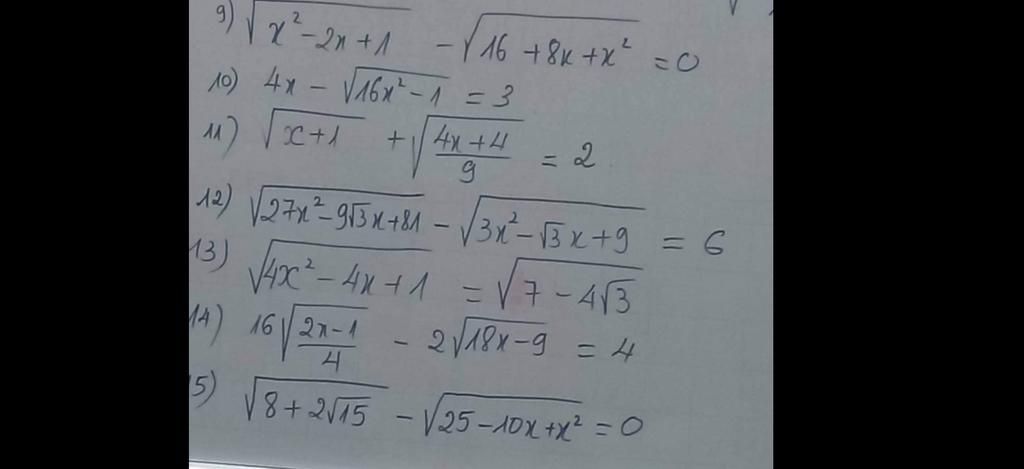 9) √(x² - 2x + 1) - √(16 + 8x + x²) = 0
10) 4x - √(16x² - 1) = 3
11) √(x + 1) + √((4x + 4)/9) = 2
12) √(27x² - 9√3x + 81) - √(3x² - √3x + 9) = 6
13) √(4x² - 4x + 1) = √(7 - 4√3)
14) 16√((2x - 1)/4) - 2√(18x - 9) = 4
5) √(8 + 2√15) - √(25 - 10x + x²) = 0